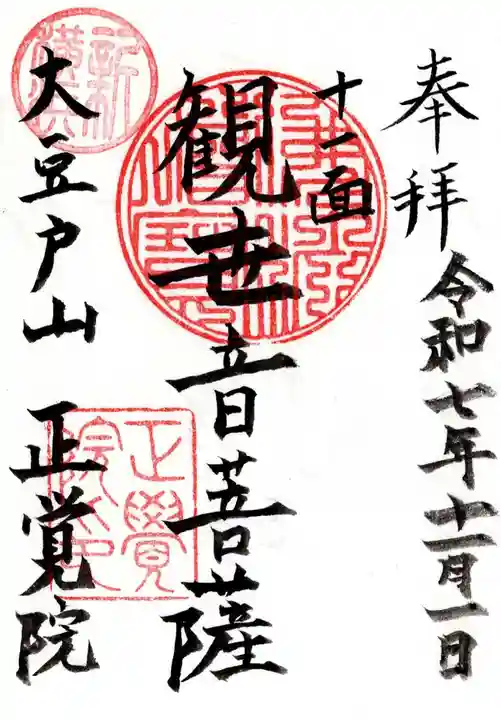 奉拝
令和七年十一月一日
十一面
観世音菩薩
大豆戸山 正覚院
正覺院印